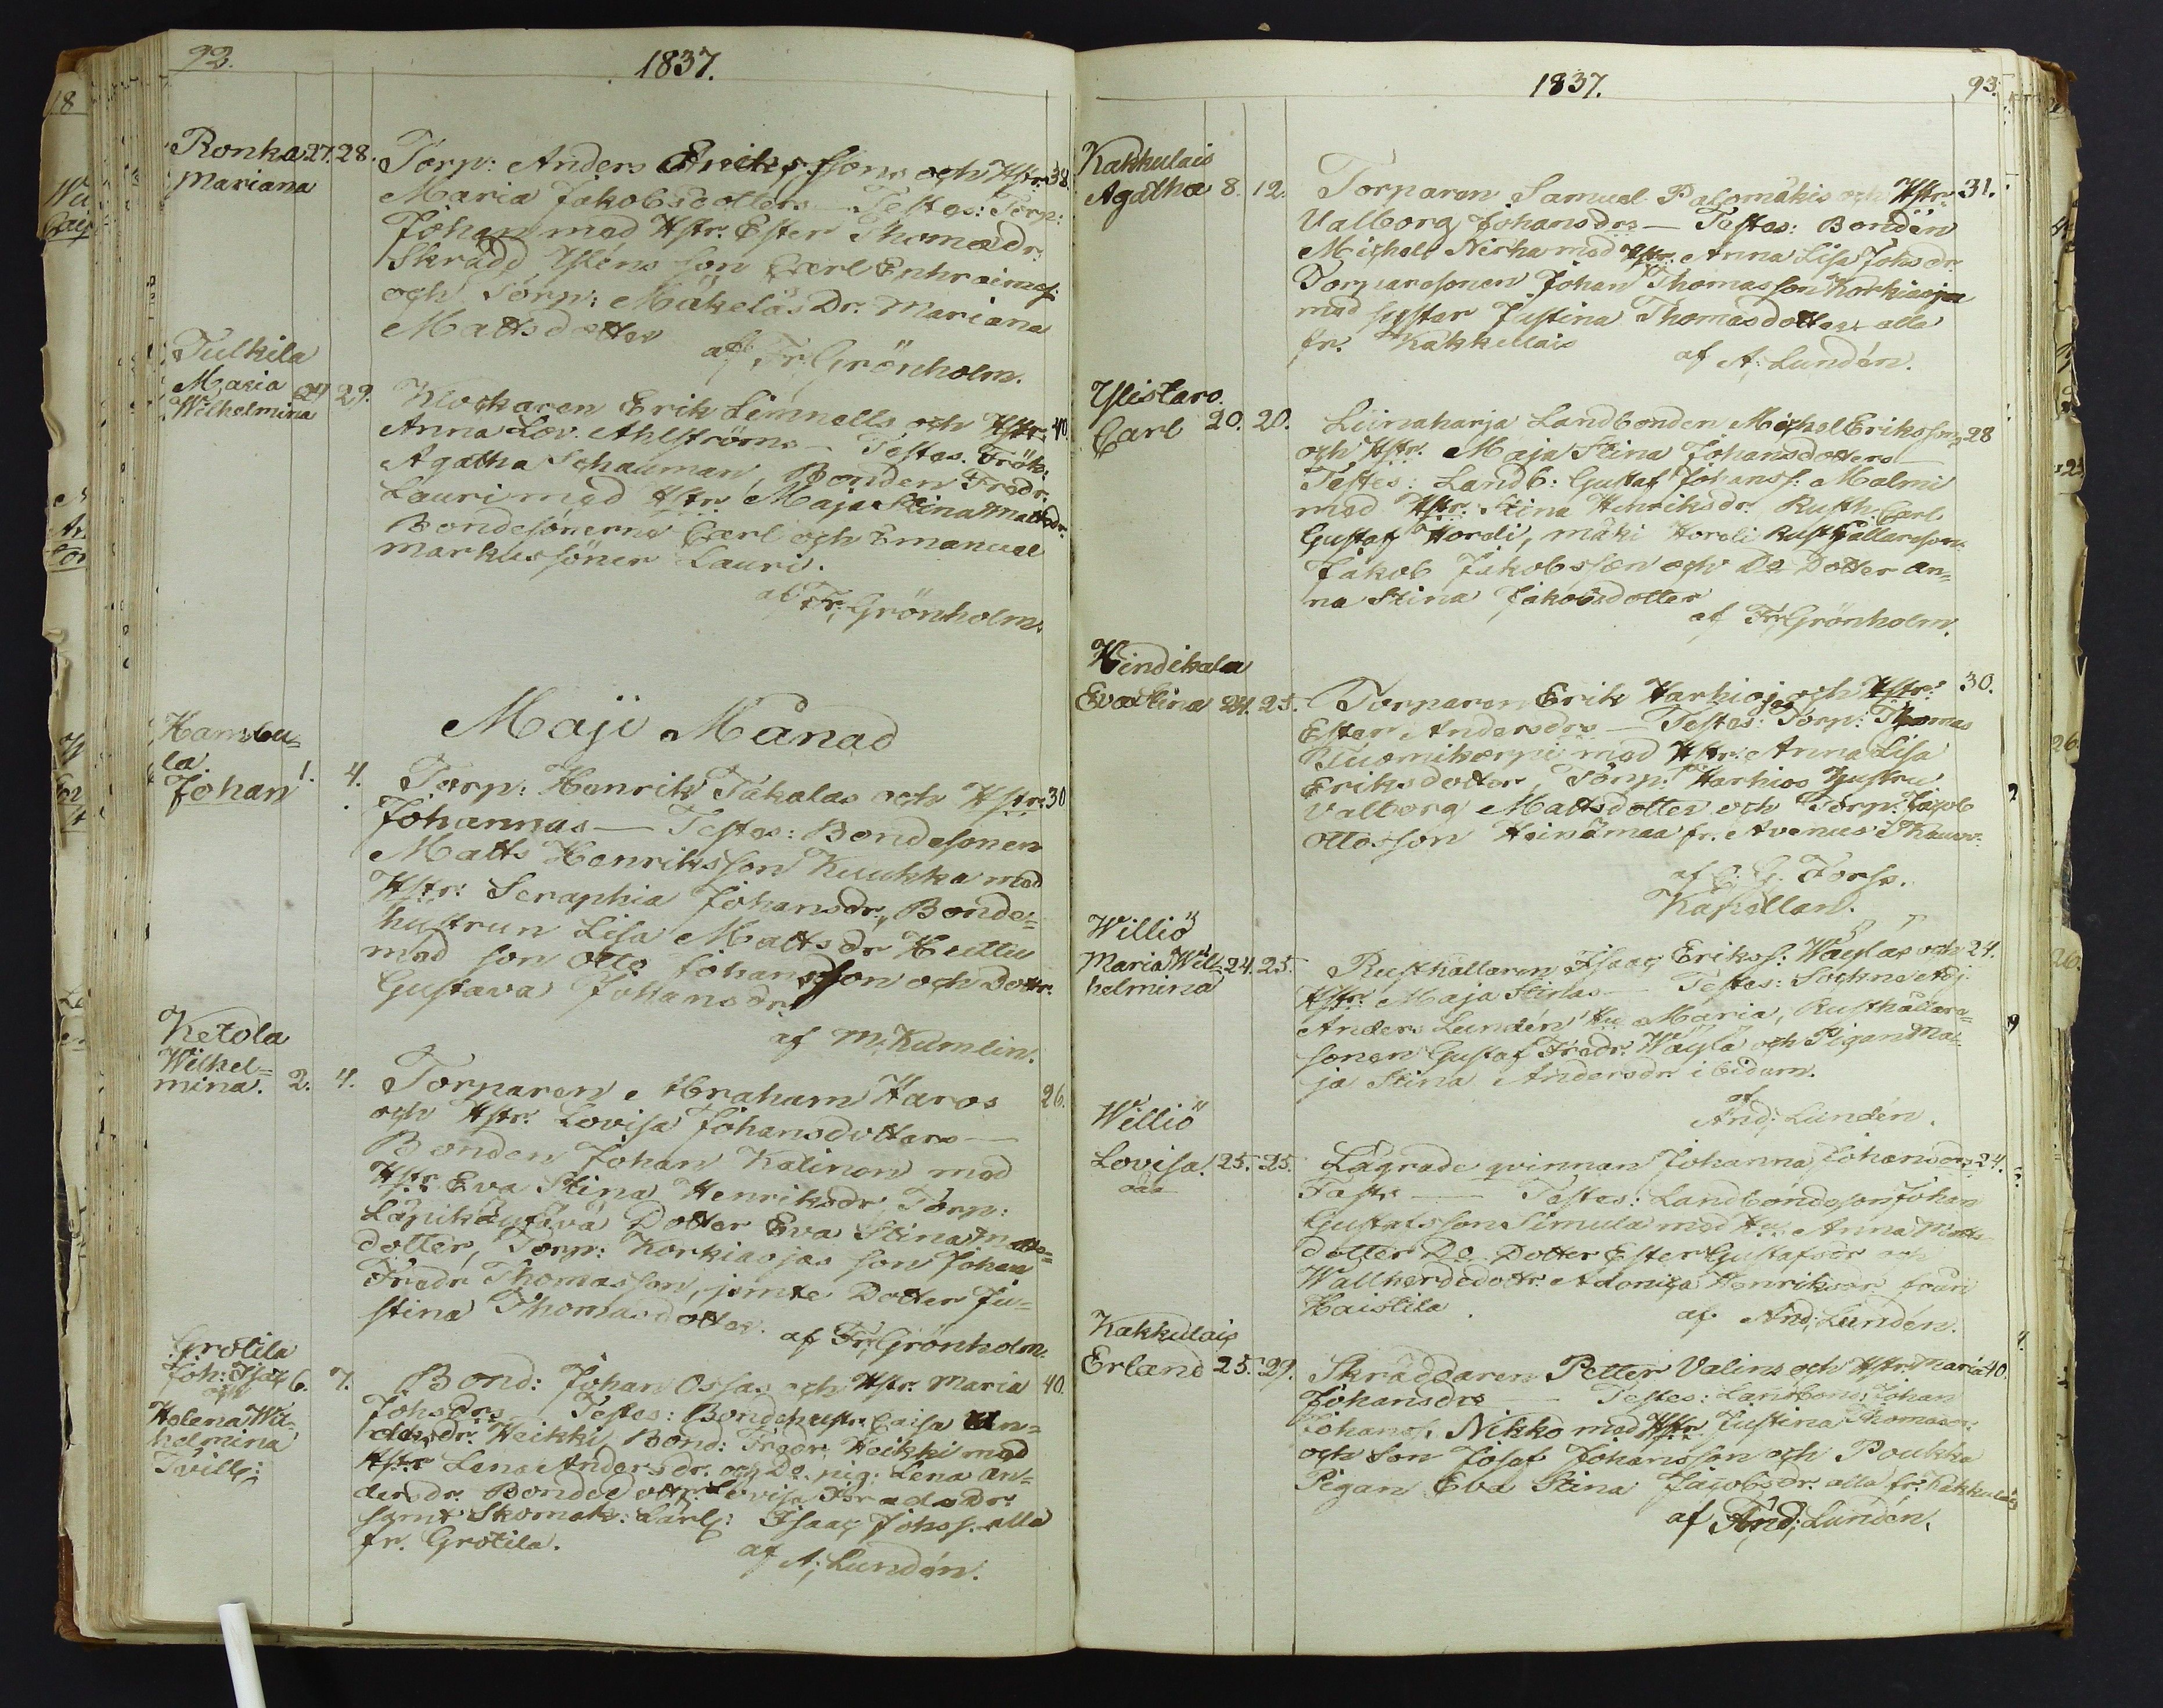 92.
1837.
Ronka 27. 28. Torp: Anders Eriksssons och Hstr. 38.
Mariana
Maria Jakobsdotters — Testes: Torp:
Johan med Hstr. Ester Thomædr.
Skrädd son Carl Ephraims:
och Torp: Mäkeläs Dr. Mariana
Mattsdotter
af Fr: Grönholm.
Tulkila
Maria 29. Klockaren Erik Limnells och Hstr. 40
Wilhelmina
Anna Lov. Ahlströms — Testes. Frök:
Agatha Schauman, Bonden Fredr.
Lauri med Hstr. Maja Stina Mattsdr.
Bondesönerna Carl och Emanuel
Markussöner Lauri.
af Fr. Grönholm.
Maji Månad
Hambu=
la.
Johan 1. 4. Torp: Henrik Takalas och Hstr: 30
Johannas — Testes: Bondesonen
Matts Henriksson Kuukka med
Hstr: Seraphia Johansdr, Bonde=
hustrun Lisa Mattsdr Huttu
med son Otto Johansson och Dottr.
Gustava Johansdr.
af M. Kumlin.
Ketola
Wilhel=
mina. 2. 4. Torparen Abraham Haros 26.
och Hstr. Lovisa Johansdotters —
Bonden Johan Kalinen med
Hstr Eva Stina Henriksdr, Torp:
Dotter Eva Stina Matts=
dotter, Torp: Korkiaojas son Johan
Fredr Thomasson, jemte Dotter Ju=
stina Thomasdotter.
af Fr. Grönholm.
Grotila
Joh: Isac 6. 7. Bond: Johan Ossas och Hstr. Maria 40.
och
Helena Wil=
helmina
Tvill:
Johsdrs Testes: Bondehustr. Caisa An=
dersdr. Heikki Bond: Fredr Heikki med
Hstr Lena Andersdr. och Do. pig: Lena An=
dersdr. Bondedottr. Lovisa Fredsdr.
samt Skomak: Lärl: Isaac Johss. alla
fr. Grotila.
af A; Lundén.
1837.
93.
Kakkulais
Agatha 8. 12. Torparen Samuel Palomäkis och Hstr. 31.
Valborg Johansdrs — Testes: Bonden
Michel Nirha med Hstr. Anna Lisa Johsdr
Torparesonen Johan Thomasson Korkiaoja
med syster Justina Thomasdotter alla
fr. Kakkulais
af A; Lundén.
Ylistaro.
Carl 20. 20. Liinaharja Landbonden Michel Erikssons 28
och Hstr. Maja Stina Johansdotters
Testes: Landb: Gustaf Johanss: Malmi
med Hstr. Stina Henriksdr. Rusth: Carl
Gustaf Horeli, mäki Horeli Rusthållareson
Jakob Jakobsson och Do Dotter An=
na Stina Jakobsdotter
af Fr: Grönholm.
Hindikala
Eva Stina 24. 25. Torparen Erik Harhiojas och Hstr: 30.
Ester Andersdrs — Testes: Torp: Thomas
Tuomikorpi med Hstr: Anna Lisa
Eriksdotter, Torp: Harhios Hustru
Valborg Mattsdotter och Torp: Jacob
Ottosson Heinämaa fr. Avenus i
af C. G. Forss.
Kapellan.
Williö
Maria Wil= 24. 25. Rusthållaren Isaac Erikss: Wäyläs och 24.
helmina
Hstr: Maja Stinas — Testes: Sockne Adj.
Anders Lundén Hu Maria, Rusthållare=
sonen Gustaf Fredr. Wäylä och Pigan Ma=
ja Stina Andersdr. ibidem.
af
And; Lundén.
Williö
Lovisa! 25. 25. Lägrade qvinnan Johanna Johansdrs 24.
oäa
Testes: Landbondeson Johan
Gustafsson Simula med Anna Matts
dotter Do Dotter Ester Gustafsdr och
Wallherdedottr. Adoniga Henriksdr från
Haistila.
af And; Lundén.
Kakkulais
Erland 25. 29. Skräddaren Petter Valins och Hstr. Maria 40.
Johansdrs — Testes: Landbond: Johan
Johanss. Nikko med Hstr Justina Thomasdr
och Son Josef Johansson och Poukka
Pigan Eva Stina Jacobsdr. alla fr. Kakkulais
af And; Lundén.